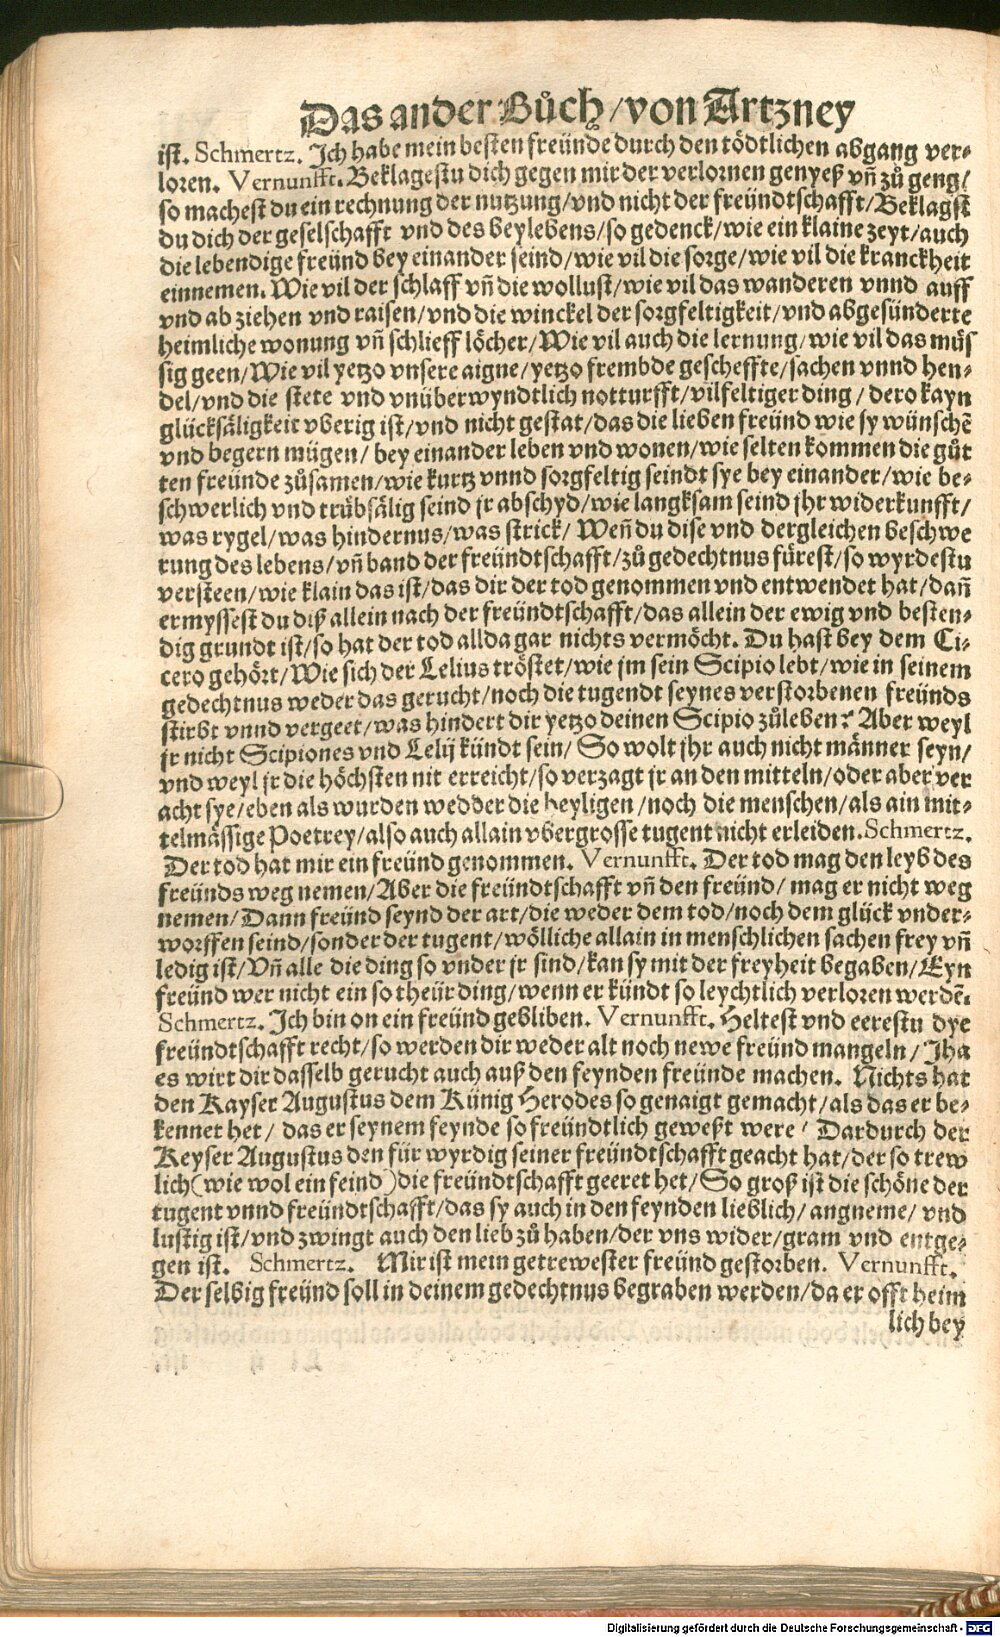 Das ander Bůch/von Artzney
ist. Schmertz. Ich habe mein besten freünde durch den tödtlichen abgang ver⸗
loren. Vernunfft. Beklagestu dich gegen mir der verlornen genyeß vñ zů geng/
so machest du ein rechnung der nutzung/vnd nicht der freündtschafft/Beklagst
du dich der geselschafft vnd des beylebens/so gedenck/wie ein klaine zeyt/auch
die lebendige freünd bey einander seind/wie vil die sorge/wie vil die kranckheit
einnemen. Wie vil der schlaff vñ die wollust/wie vil das wanderen vnnd auff
vnd ab ziehen vnd raisen/vnd die winckel der sorgfeltigkeit/vnd abgesünderte
heimliche wonung vñ schlieff löcher/Wie vil auch die lernung/wie vil das müs
sig geen/Wie vil yetzo vnsere aigne/yetzo frembde gescheffte/sachen vnnd hen⸗
del/vnd die stete vnd vnüberwyndtlich notturfft/vilfeltiger ding/ dero kayn
glücksäligkeit vberig ist/vnd nicht gestat/das die lieben freünd wie sy wünschē
vnd begern mügen/ bey einander leben vnd wonen/wie selten kommen die gůt
ten freünde zůsamen/wie kurtz vnnd sorgfeltig seindt sye bey einander/wie be⸗
schwerlich vnd trübsälig seind jr abschyd/wie langksam seind jhr widerkunfft/
was rygel/was hindernus/was strick/ Weñ du dise vnd dergleichen beschwe
rung des lebens/vñ band der freündtschafft/zů gedechtnus fürest/so wyrdestu
versteen/wie klain das ist/das dir der tod genommen vnd entwendet hat/dañ
ermyssest du diß allein nach der freündtschafft/das allein der ewig vnd besten⸗
dig grundt ist/so hat der tod allda gar nichts vermöcht. Du hast bey dem Ci⸗
cero gehört/Wie sich der Lelius tröstet/wie jm sein Scipio lebt/wie in seinem
gedechtnus weder das gerucht/noch die tugendt seynes verstorbenen freünds
stirbt vnnd vergeet/was hindert dir yetzo deinen Scipio zůleben? Aber weyl
jr nicht Scipiones vnd Lelij kündt sein/ So wolt jhr auch nicht männer seyn/
vnd weyl jr die höchsten nit erreicht/so verzagt jr an den mitteln/oder aber ver
acht sye/eben als wurden wedder die heyligen/noch die menschen/als ain mit⸗
telmässige Poetrey/also auch allain vbergrosse tugent nicht erleiden. Schmertz.
Der tod hat mir ein freünd genommen. Vernunfft. Der tod mag den leyb des
freünds weg nemen/Aber die freündtschafft vñ den freünd/ mag er nicht weg
nemen/Dann freünd seynd der art/die weder dem tod/noch dem glück vnder⸗
worffen seind/sonder der tugent/wölliche allain in menschlichen sachen frey vñ
ledig ist/Vñ alle die ding so vnder jr sind/kan sy mit der freyheit begaben/Eyn
freünd wer nicht ein so theür ding/wenn er kündt so leychtlich verloren werdē.
Schmertz. Ich bin on ein freünd gebliben. Vernunfft. Heltest vnd eerestu dye
freündtschafft recht/so werden dir weder alt noch newe freünd mangeln/ Jha
es wirt dir dasselb gerucht auch auß den feynden freünde machen. Nichts hat
den Kayser Augustus dem Künig Herodes so genaigt gemacht/als das er be⸗
kennet het/ das er seynem feynde so freündtlich geweßt were/ Dardurch der
Keyser Augustus den für wyrdig seiner freündtschafft geacht hat/der so trew
lich(wie wol ein feind)die freündtschafft geeret het/So groß ist die schöne der
tugent vnnd freündtschafft/das sy auch in den feynden lieblich/ angneme/ vnd
lustig ist/vnd zwingt auch den lieb zů haben/der vns wider/gram vnd entge⸗
gen ist. Schmertz. Mir ist mein getrewester freünd gestorben. Vernunfft.
Der selbig freünd soll in deinem gedechtnus begraben werden/da er offt heim
lich bey
Digitalisierung gefördert durch die Deutsche Forschungsgemeinschaft - DFG